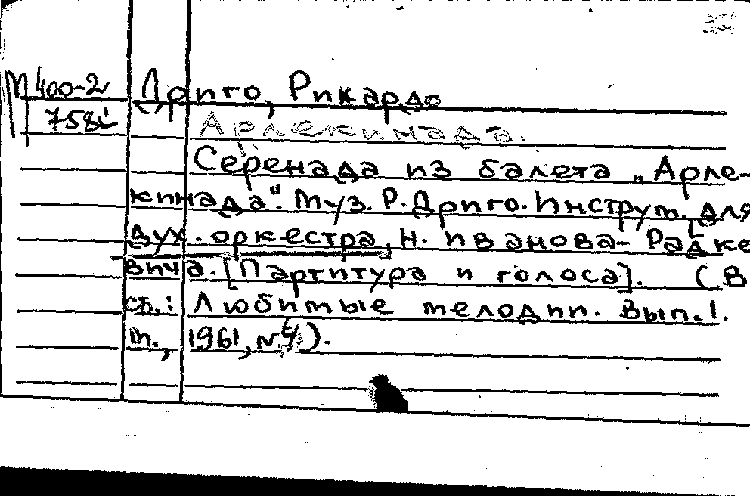 М 400-2 Дриго, Рикардо
758
Арлекинада.
Серенада из балета „Арле-
кинада". Муз. Р. Дриго. Инструм. для
дух. оркестра, Н. Иванова-Радке
вича. [Партитура и голоса]. (В
сб.: Любимые мелодии. Вып. 1.
М., 1961, № 4).